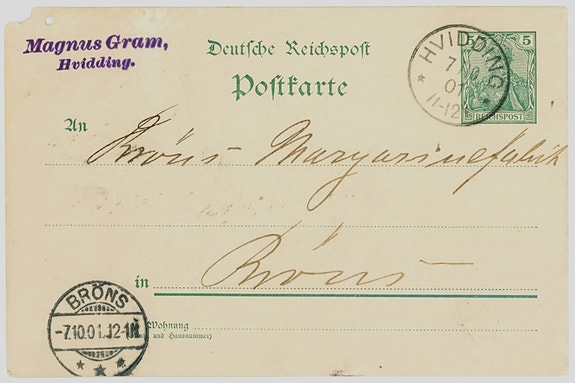 Magnus Gram,
Hvidding.
Deutsche Reichspost
Postkarte
HVIDDING
7
01
11-12
5 5
REICHSPOST
An
Bröns Margarinefabrik
in Bröns
BRÖNS
-7.10.01.12-1N.
Wohnung
und Hausnummer)